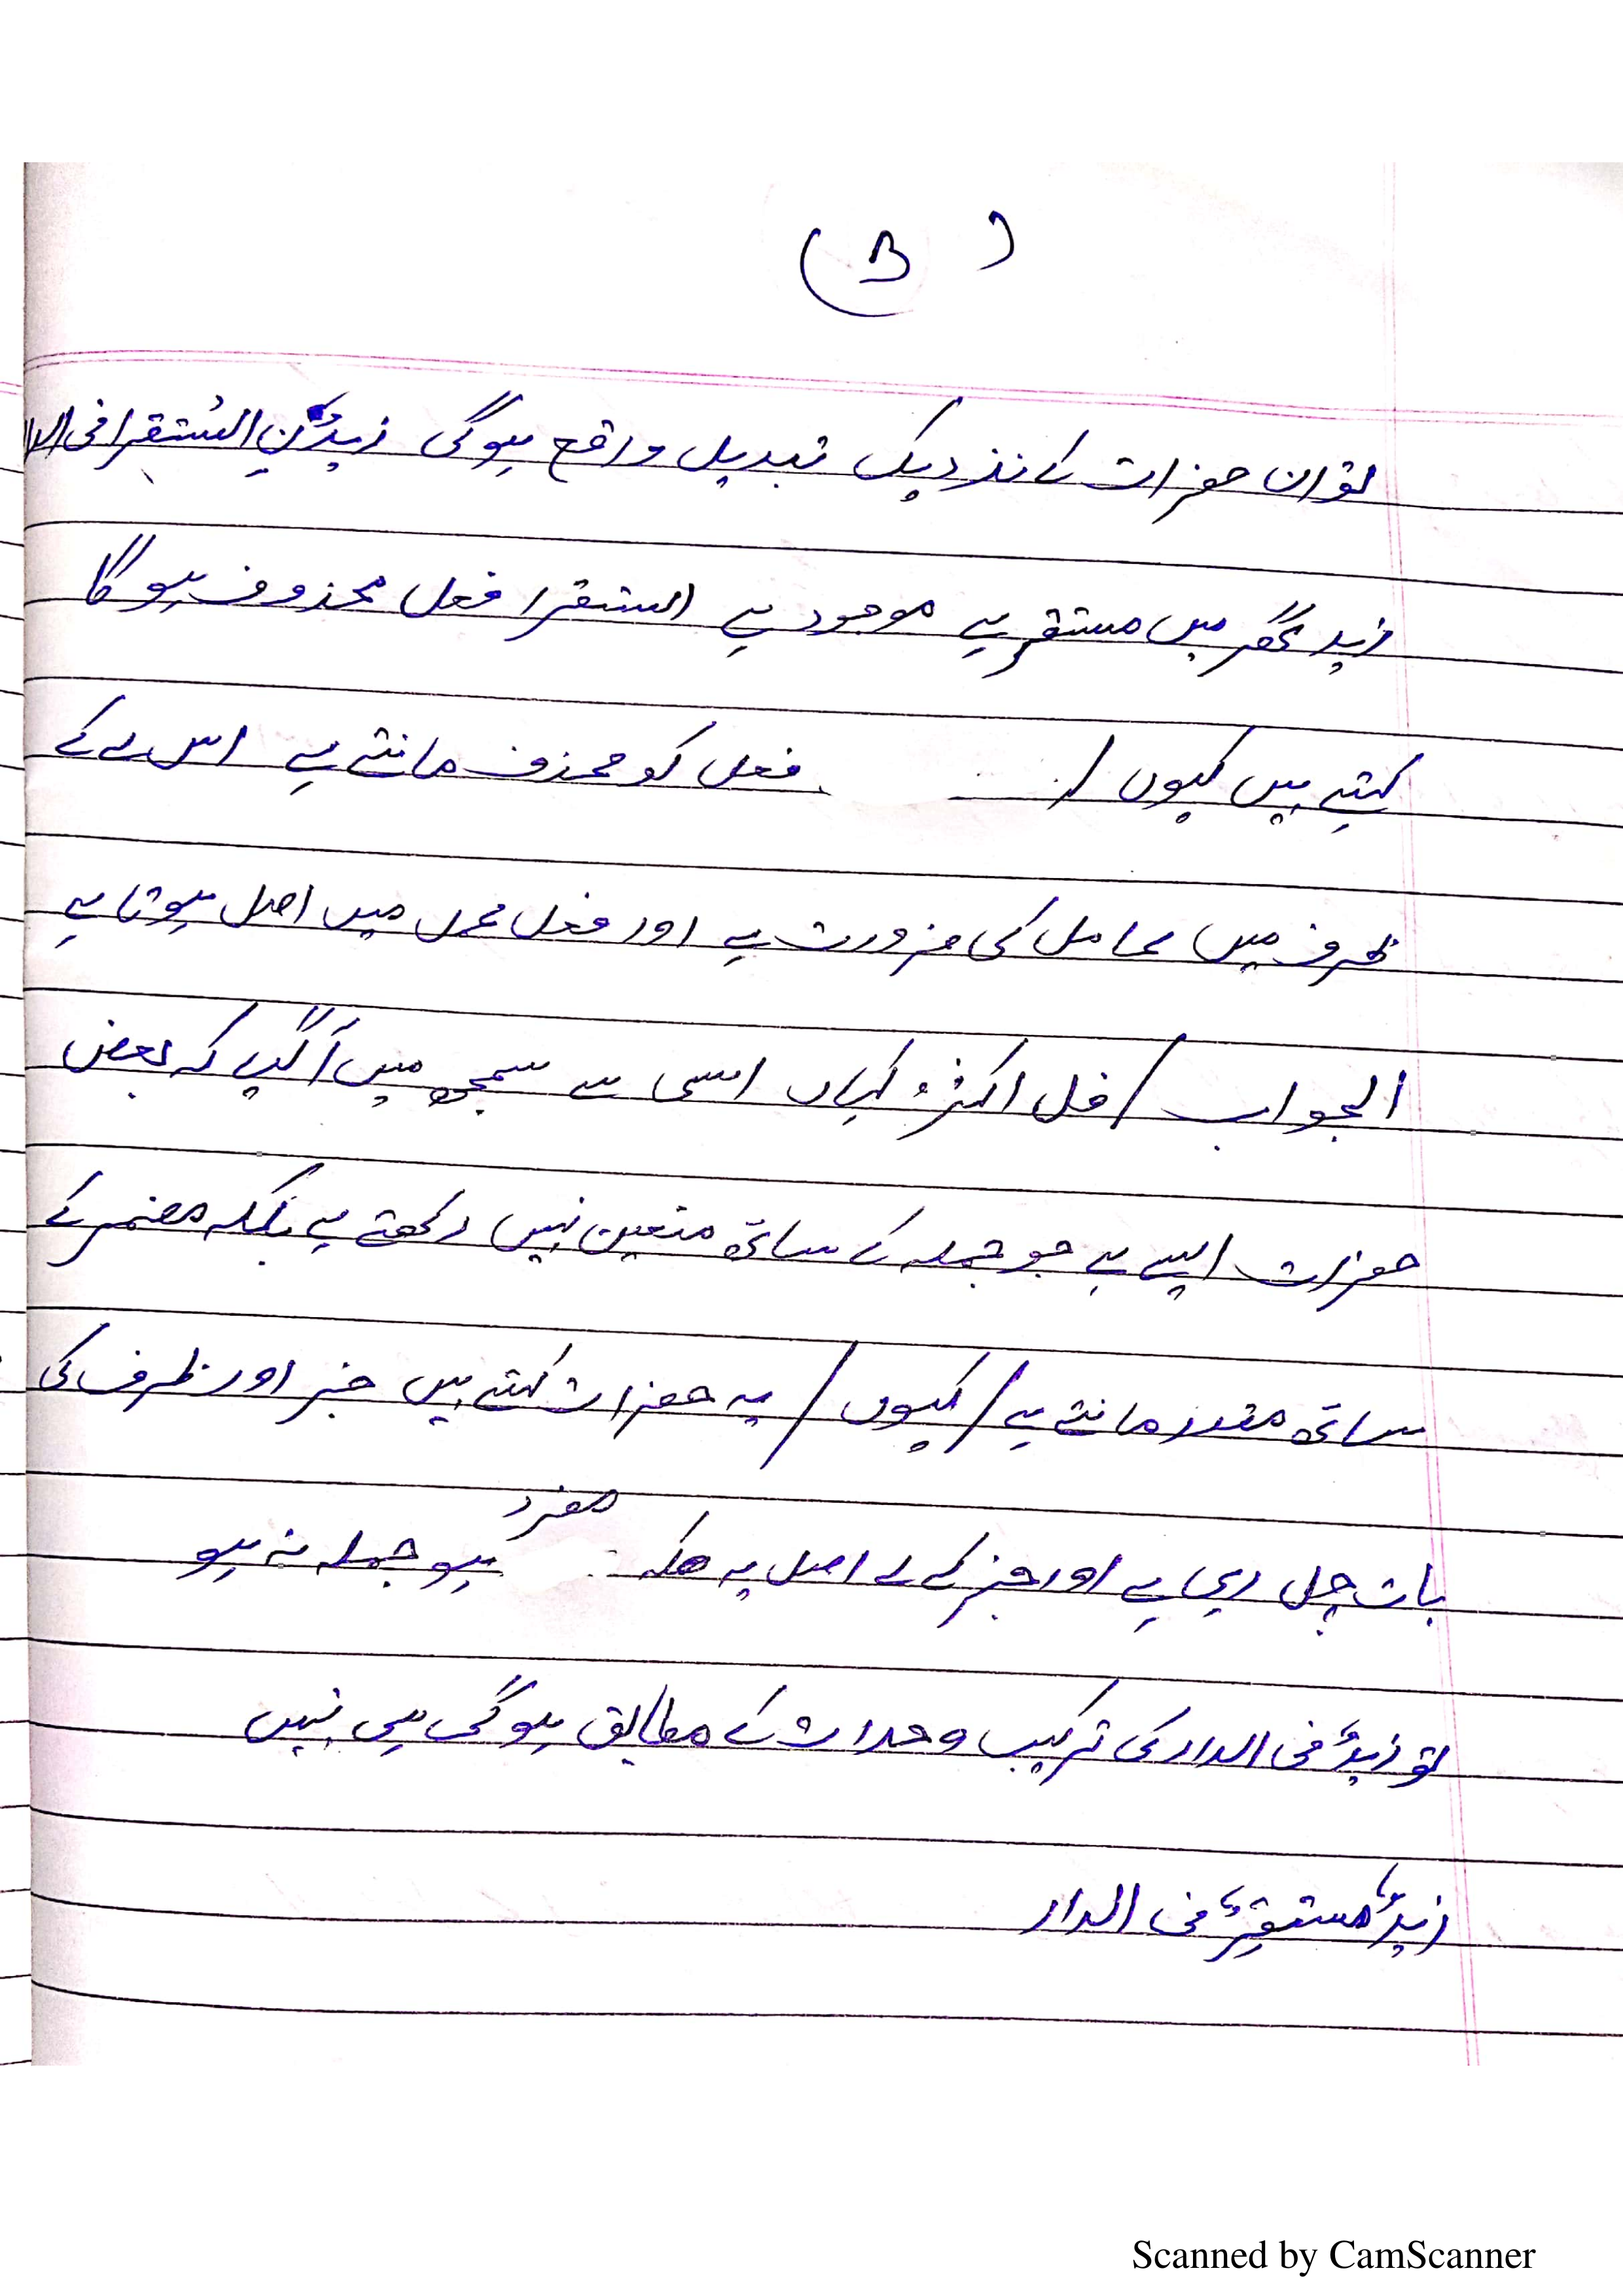 (B)
تو ان حضرات کے نزدیک تبدیل واقع ہوگی زیدٌنِ استقرا فی الدا
زید گھر میں مستقر ہے موجود ہے استقرا فعل محذوف ہوگا
کہتے ہیں کیوں / فعل کو محذف مانتے ہے اس لے کے
ظرف میں عامل کی ضرورت ہے اور فعل عمل میں اصل ہوتا ہے
الجواب / فل اکثر کہاں اسی سے سمجھ میں آگیا کہ بعض
حضرات ایسے ہے جو جملہ کے ساتھ متعین نہیں رکھتے ہے بلکہ مضمر کے
ساتھ مقدر مانتے ہے / کیوں / یہ حضرات کہتے ہیں خبر اور ظرف کی
بات چل رہی ہے اور خبر کے لے اصل یہ ھیکہ مفرد ہو جملہ نہ ہو
تو زیدٌ فی الدار کی ترکیب وحدات کے مطابق ہوگی ہی نہیں
زیدٌ مستقرٌ فی الدار
Scanned by CamScanner